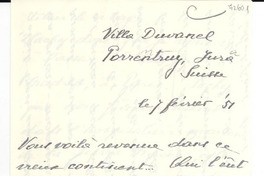 Villa Duvanel
Porrentruy, Jura
Suisse
le 7 février '51
Vous voilà revenue dans ce
vieux continent... Qui l'eût